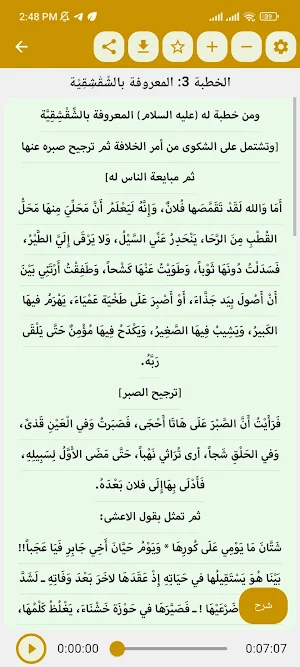 2:48 PM
89
الخطبة 3: المعروفة بالشِّقْشِقِيَّة
ومن خطبة له (عليه السلام) المعروفة بالشِّقْشِقِيَّة
[وتشتمل على الشكوى من أمر الخلافة ثم ترجيح صبره عنها
ثم مبايعة الناس له]
أَمَا وَالله لَقَدْ تَقَمَّصَها فُلانٌ، وَإِنَّهُ لَيَعْلَمُ أَنَّ مَحَلِّيَ مِنهَا مَحَلُّ
القُطْبِ مِنَ الرَّحَا، يَنْحَدِرُ عَنِّي السَّيْلُ، وَلا يَرْقَى إِلَيَّ الطَّيْرُ،
فَسَدَلْتُ دُونَهَا ثَوْباً، وَطَوَيْتُ عَنْهَا كَشْحاً، وَطَفِقْتُ أَرْتَئِي بَيْنَ
أَنْ أَصُولَ بِيَد جَذَّاءَ، أَوْ أَصْبِرَ عَلَى طَخْيَة عَمْيَاءَ، يَهْرَمُ فيهَا
الكَبيرُ، وَيَشِيبُ فِيهَا الصَّغِيرُ، وَيَكْدَحُ فِيهَا مُؤْمِنٌ حَتَّى يَلْقَى
رَبَّهُ.
[ترجيح الصبر]
فَرَأَيْتُ أَنَّ الصَّبْرَ عَلَى هَاتَا أَحْجَى، فَصَبَرتُ وَفي الْعَيْنِ قَذىً،
وَفي الحَلْقِ شَجاً، أرى تُرَاثي نَهْباً، حَتَّى مَضَى الأَوَّلُ لِسَبِيلِهِ،
فَأَدْلَى بِهَاإِلَى فلان بَعْدَهُ.
ثم تمثل بقول الاعشى:
شَتَّانَ مَا يَوْمِي عَلَى كُورِهَا * وَيَوْمُ حَيَّانَ أَخِي جَابِرِ فَيَا عَجَباً!!
بَيْنَا هُوَ يَسْتَقِيلُها في حَيَاتِهِ إِذْ عَقَدَهَا لاخَرَ بَعْدَ وَفَاتِهِ ـ لَشَدَّ
ضَرْعَيْهَا ! ـ فَصَيَّرَهَا في حَوْزَة خَشْنَاءَ، يَغْلُظُ كَلْمُهَا،
شرح
0:00:00
0:07:07